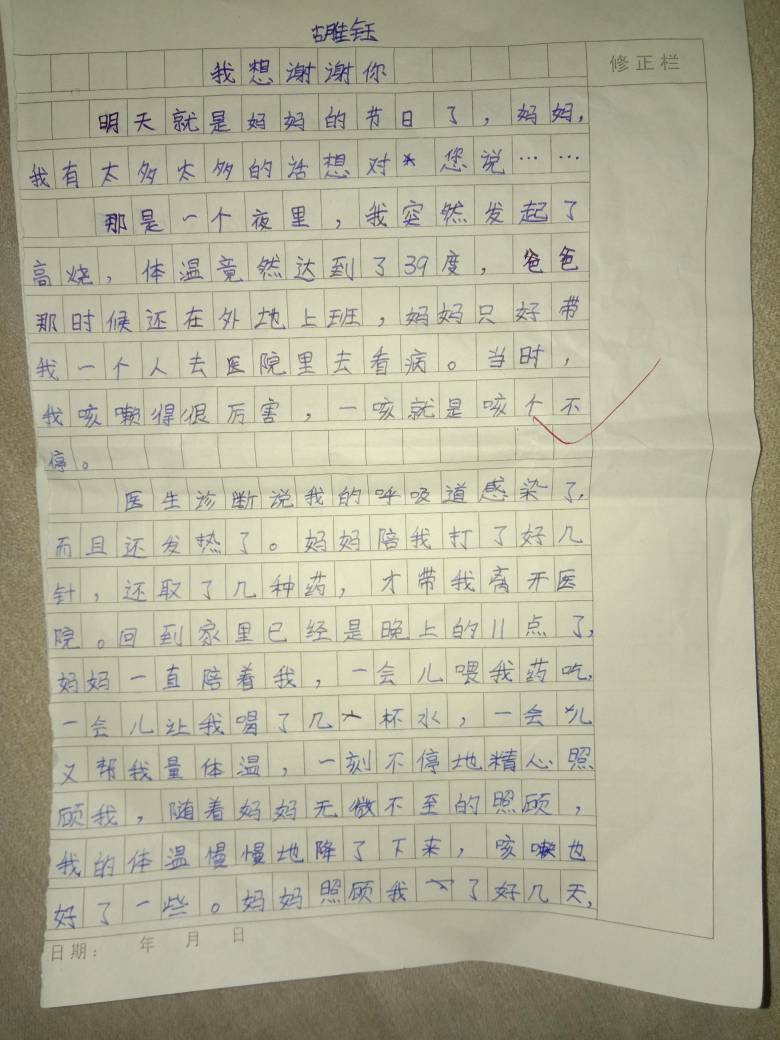 胡胜钰
我想谢谢你
修正栏
明天就是妈妈的节日了，妈妈，
我有太多太多的话想对您说……
那是一个夜里，我突然发起了
高烧，体温竟然达到了39度，爸爸
那时候还在外地上班，妈妈只好带
我一个人去医院里去看病。当时，
我咳嗽得很厉害，一咳就是咳个不
停。
医生诊断说我的呼吸道感染了，
而且还发热了。妈妈陪我打了好几
针，还取了几种药，才带我离开医
院。回到家里已经是晚上的11点了，
妈妈一直陪着我，一会儿喂我药吃，
一会儿让我喝了几杯水，一会儿
又帮我量体温，一刻不停地精心照
顾我，随着妈妈无微不至的照顾，
我的体温慢慢地降了下来，咳嗽也
好了一些。妈妈照顾我了好几天，
日期： 年 月 日